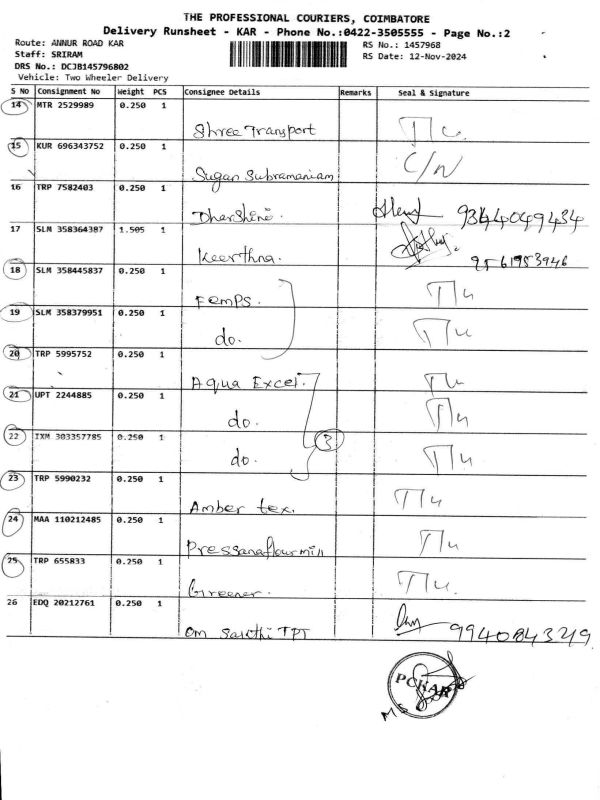 THE PROFESSIONAL COURIERS, COIMBATORE
Delivery Runsheet - KAR - Phone No.:0422-3505555 - Page No.:2
Route: ANNUR ROAD KAR RS No.: 1457968
Staff: SRIRAM RS Date: 12-Nov-2024
DRS No.: DCJB145796802
Vehicle: Two Wheeler Delivery
S No Consignment No Weight PCS Consignee Details Remarks Seal & Signature
14 MTR 2529989 0.250 1
Shree Transport
15 KUR 696343752 0.250 1
C/N
Sugan Subramaniam
16 TRP 7582403 0.250 1
Dharshini. 9344049434
17 SLM 358364387 1.505 1
Keerthna. 9561953946
18 SLM 358445837 0.250 1
Femps.
19 SLM 358379951 0.250 1
do.
20 TRP 5995752 0.250 1
Aqua Excel.
21 UPT 2244885 0.250 1
do.
22 IXM 303357785 0.250 1
3
do.
23 TRP 5990232 0.250 1
Amber tex.
24 MAA 110212485 0.250 1
Pressanaflourmill
25 TRP 655833 0.250 1
Greener.
26 EDQ 20212761 0.250 1
Om Sarthi TPT 9940843249
PCKAR